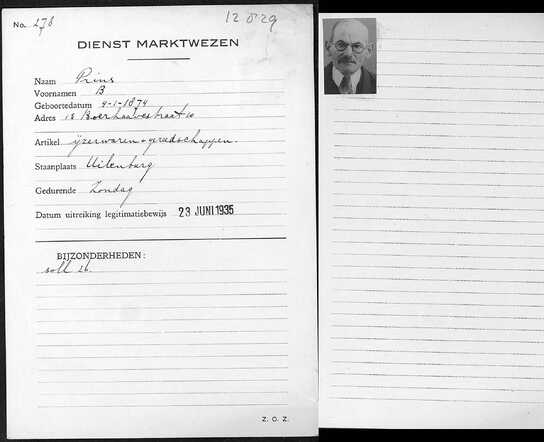 No. 276
12 029
DIENST MARKTWEZEN
Naam Prins
Voornamen B
Geboortedatum 4-1-1874
Adres 18 Boerhaavestraat
Artikel ijzerwaren + gereedschappen.
Staanplaats Uilenburg
Gedurende Zondag
Datum uitreiking legitimatiebewijs 23 JUNI 1935
BIJZONDERHEDEN:
soll 26.
Z. O. Z.